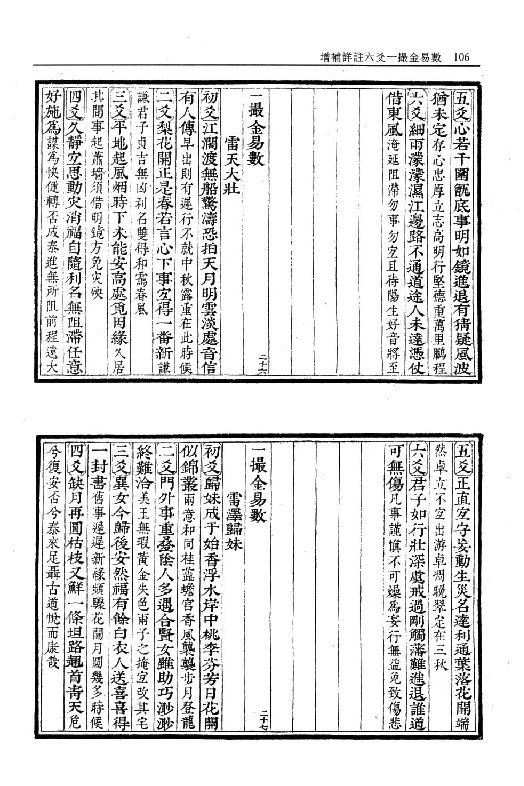 增補詳註六爻一撮金易數 106
五爻心若千團甌底事明如鏡進退有猜疑風波
猶未定存心忠厚立志高明行堅德重萬里鵬程
六爻細雨濛濛濕江邊路不通道途人未達憑仗
借東風淹延阻滯勿事勿宜且待陽生好音將至
一撮金易數
二十六
雷天大壯
初爻江濶渡無船驚濤恐拍天月明雲淡處音信
有人傳早出則有遲行不就中秋露重在此時候
二爻梨花開正是春若言心下事宜得一番新謙
謙君子貞吉無凶利名雙得和靄春風
三爻平地起風煙時下未能安高處覓因緣久居
其間事起蕭墻須借明鏡方免災殃
四爻久靜宜思動灾消福自隨利名無阻滯任意
好施為謀為快便轉否成泰進無所阻前程遠大
五爻正直宜守妄動生災名達利通葉落花開端
然卓立不宜出游卓犖晚翠定在三秋
六爻君子如行壯深虞戒過剛觸藩難進退誰道
可無傷凡事謹愼不可燥為妄行無益免致傷悲
一撮金易數
二十七
雷澤歸妹
初爻歸妹成于始香浮水岸中桃李芬芳日花開
似錦叢兩意和同桂露蟾宮香風襲襲步月登龍
二爻門外事重疊陰人多遇合賢女雖助巧渺渺
終難洽美玉無瑕黃金失色兩子之掩宜改其宅
三爻異女今歸後安然福有餘白衣人送喜喜得
一封書舊事遲遲新緣類驟花開月圓幾多時候
四爻缺月再圓枯枝又鮮一條坦路翹首靑天危
兮復安否兮泰來足聶古道悅而康哉